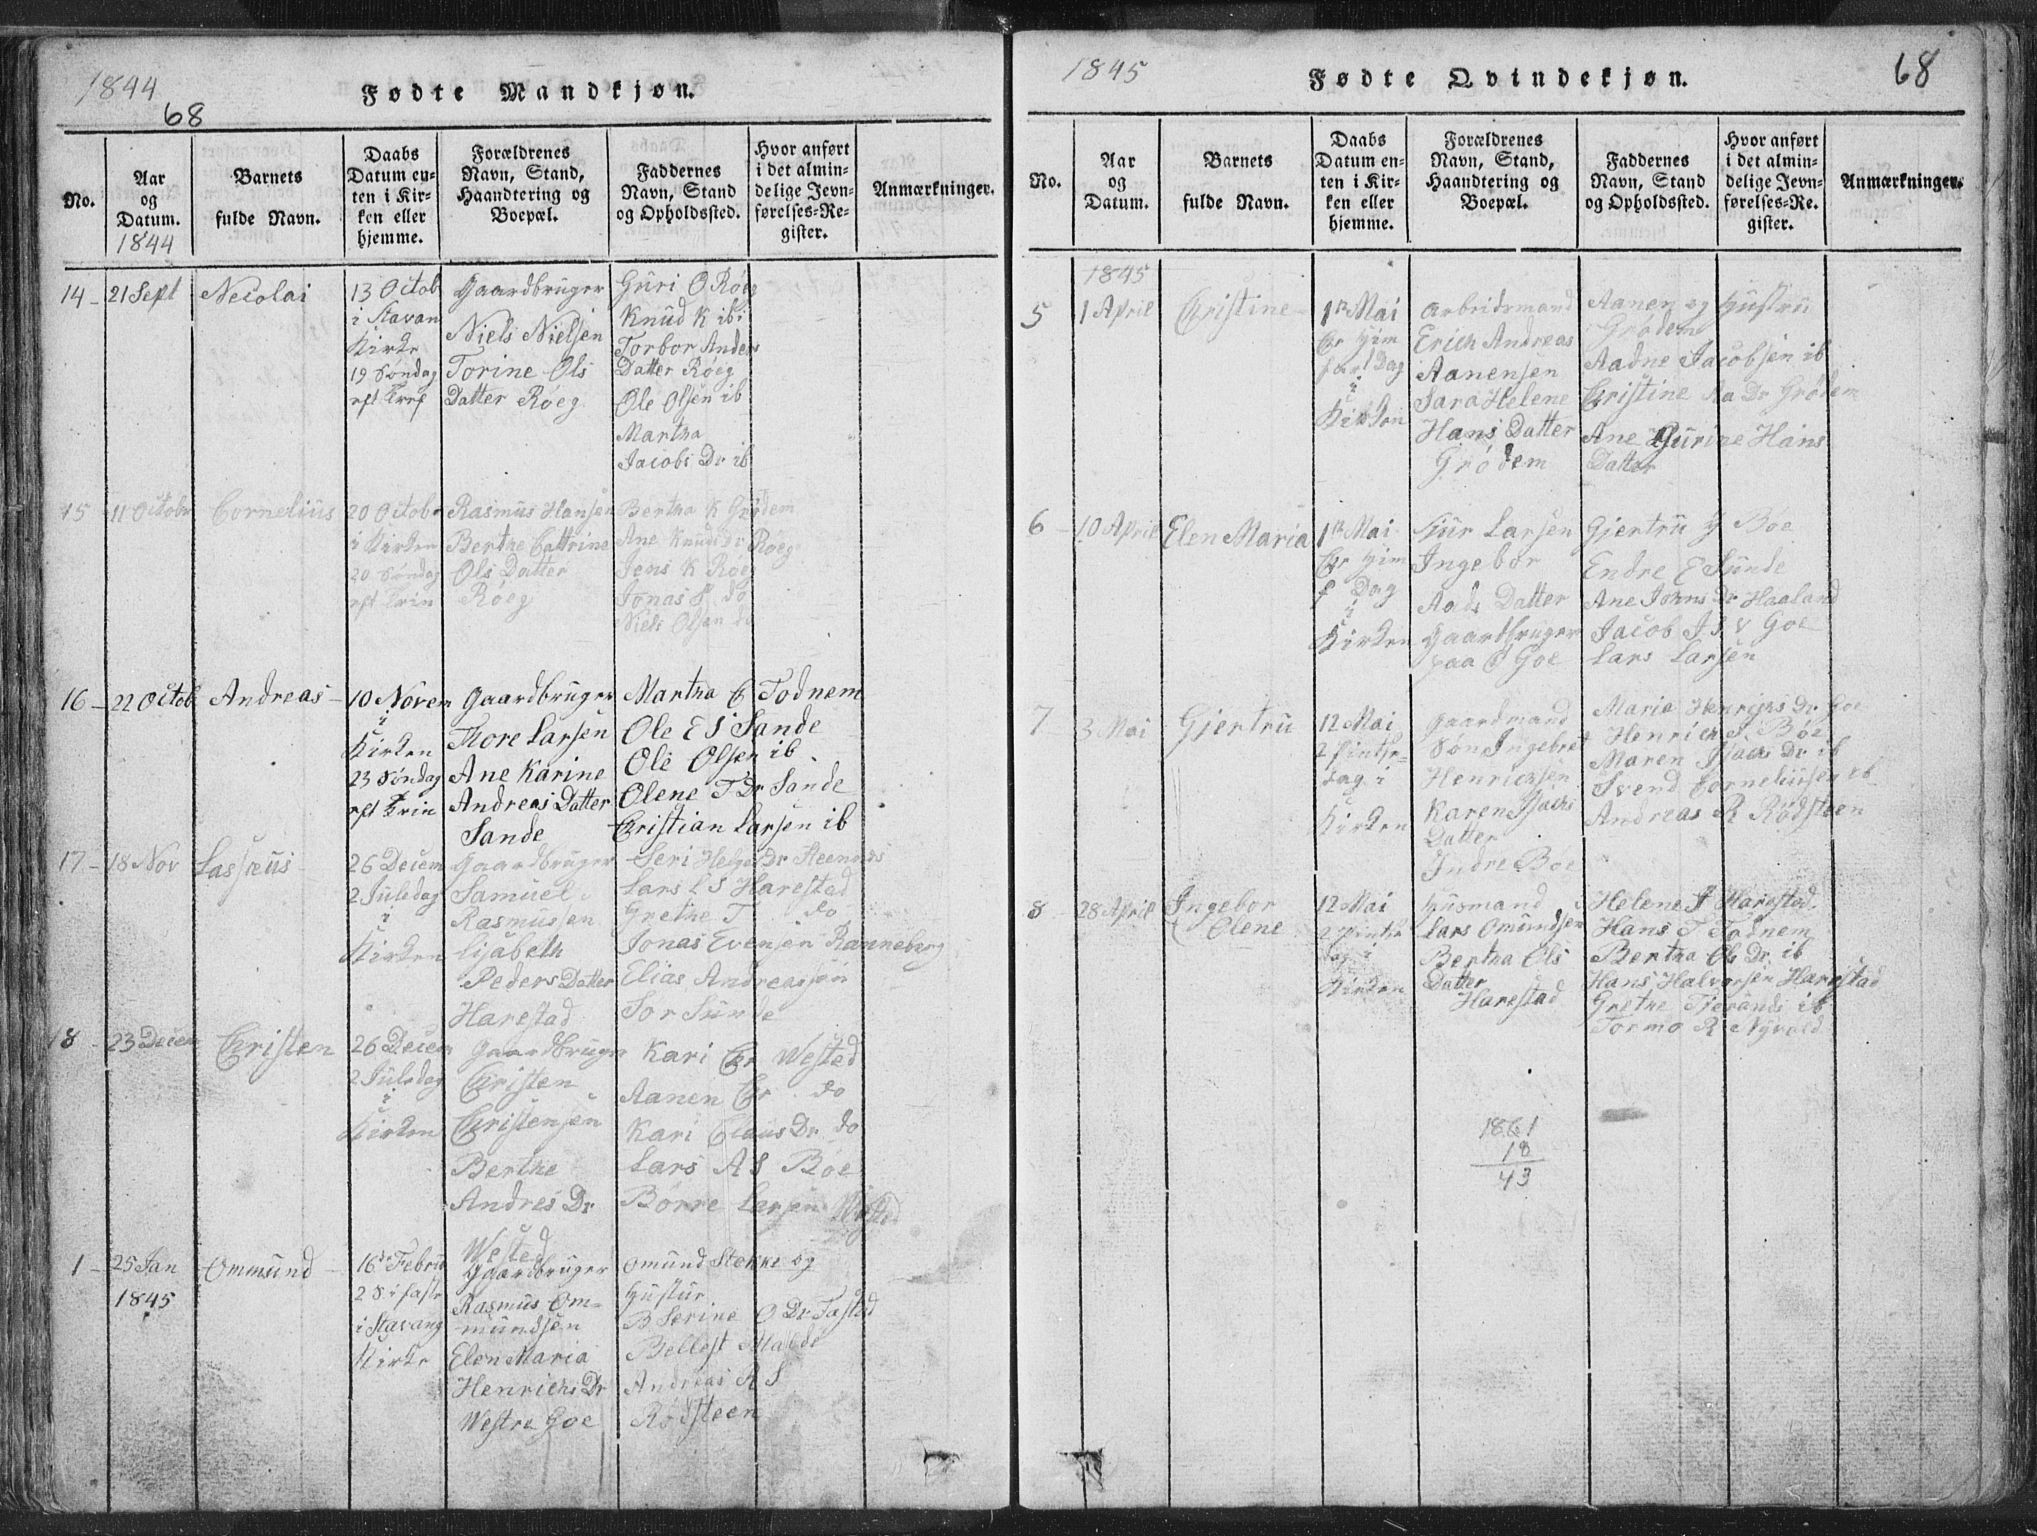 1844
68
Fødte Mandkjøn.
No.
Aar og Datum.
1844
Barnets fulde Navn.
Daabs Datum enten i Kirken eller hjemme.
Forældrenes Navn, Stand, Haandtering og Boepæl.
Faddernes Navn, Stand og Opholdssted.
Hvor anført i det almindelige Jevnførelses-Register.
Anmærkninger.
14 - 21 Sept
Necolai
13 Octob
i Stavan
Kirke
19 Søndag
eft Tref
Gaardbruger
Niels Nielsen
Torine Ols
Datter Røeg
Guri O Røeg
Knud K ib
Torbor Anders
Datter Røeg
Ole Olsen ib
Martha
Jacobs Dr ib
15 - 11 Octobr
Cornelius
20 Octobr
i Kirken
20 Søndag
eft Trin
Rasmus Hansen
Berthe Cattrine
Ols Datter
Røeg
Bertha K Grødem
Ane Knuds Dr Røeg
Jens K Røeg
Jonas S do
Niels Olsen do
16 - 22 Octob
Andreas
10 Novem
i
Kirken
23 Søndag
eft Trin
Gaardbruger
Thore Larsen
Ane Karine
Andreas Datter
Sande
Martha C Todnem
Ole E S Sande
Ole Olsen ib
Olene T Dr Sande
Christian Larsen ib
17 - 18 Nov
Lasseus
26 Decem
2 Juledag
i
Kirken
Gaardbruger
Samuel
Rasmussen
Lisabeth
Peders Datter
Harestad
Seri Helge Dr
Lars L S Harestad
Grethe T do
Jonas Evensen Ranneberg
Elias Andreassøn
Sør Sunde
18 - 23 Decem
Christen
26 Decem
2 Juledag
i
Kirken
Gaardbruger
Christen
Christensen
Berthe
Andres Dr
Wested
Kari Chr Wested
Aanen Chr do
Kari Claus Dr do
Lars A S Bøe
Børre Larsen Wested
1 - 25 Jan
1845
Ommund
16 Febru
2 S i faste
i Stavang
Kirke
Gaardbruger
Rasmus Om-
mundsen
Elen Maria
Henrichs Dr
Westre Goe
Omund Stokke og
Hustru
B Serine O Dr Tasted
Bellest Malde
Andreas R S
Rødsteen
1845
Fødte Qvindekjøn.
68
No.
Aar og Datum.
Barnets fulde Navn.
Daabs Datum enten i Kirken eller hjemme.
Forældrenes Navn, Stand, Haandtering og Boepæl.
Faddernes Navn, Stand og Opholdssted.
Hvor anført i det almindelige Jevnførelses-Register.
Anmærkninger.
1845
5
1 April
Christine
1 Mai
Chr Him
fart Dag
i
Kirken
Arbeidsmand
Erich Andreas
Aanensen
Sara Helene
Hans Datter
Grødem
Aanen og Hustru
Grødem
Aadne Jacobsen ib
Christine Aa Dr Grødem
Ane Gurine Hans
Datter
6 - 10 April
Elen Maria
1 Mai
Chr Him
f Dag
i
Kirken
Sjur Larsen
Ingebor
Aads Datter
Gaardbruger
paa Ø Goe
Gjertru Bøe
Endre E Sunde
Ane Johns Dr Haaland
Jacob J S V Goe
Lars Larsen
7
3 Mai
Gjertru
12 Mai
2 Pintse-
dag i
Kirken
Gaardmand
Søn Ingebret
Henrichsen
Karen Isachs
Datter
Indre Bøe
Maria Henrichs Dr Goe
Henrich S Bøe
Maren Isachs Dr ib
Svend Corneliusen ib
Andreas R Rødsteen
8 - 28 April
Ingebor
Olene
12 Mai
2 Pintse
dag i
Kirken
Husmand
Lars Omundsen
Bertha Ols
Datter
Harestad
Helene Harestad
Hans T Todnem
Bertha Ols Dr ib
Hans Halvorsen Harestad
Grethe Tjerands ib
Tormo R Nyvold
1861
18
43